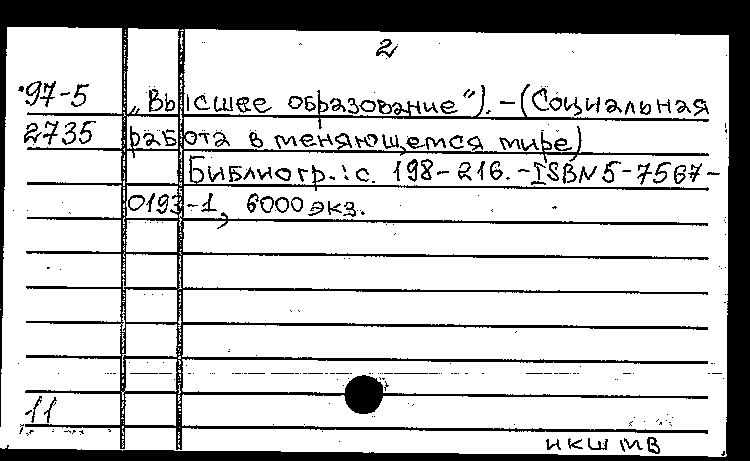 2
97-5 „Высшее образование"). – (Социальная
2735 работа в меняющемся мире)
Библиогр.: с. 198–216. – ISBN 5-7567-
0193-1, 6000 экз.
11
НКШ МВ